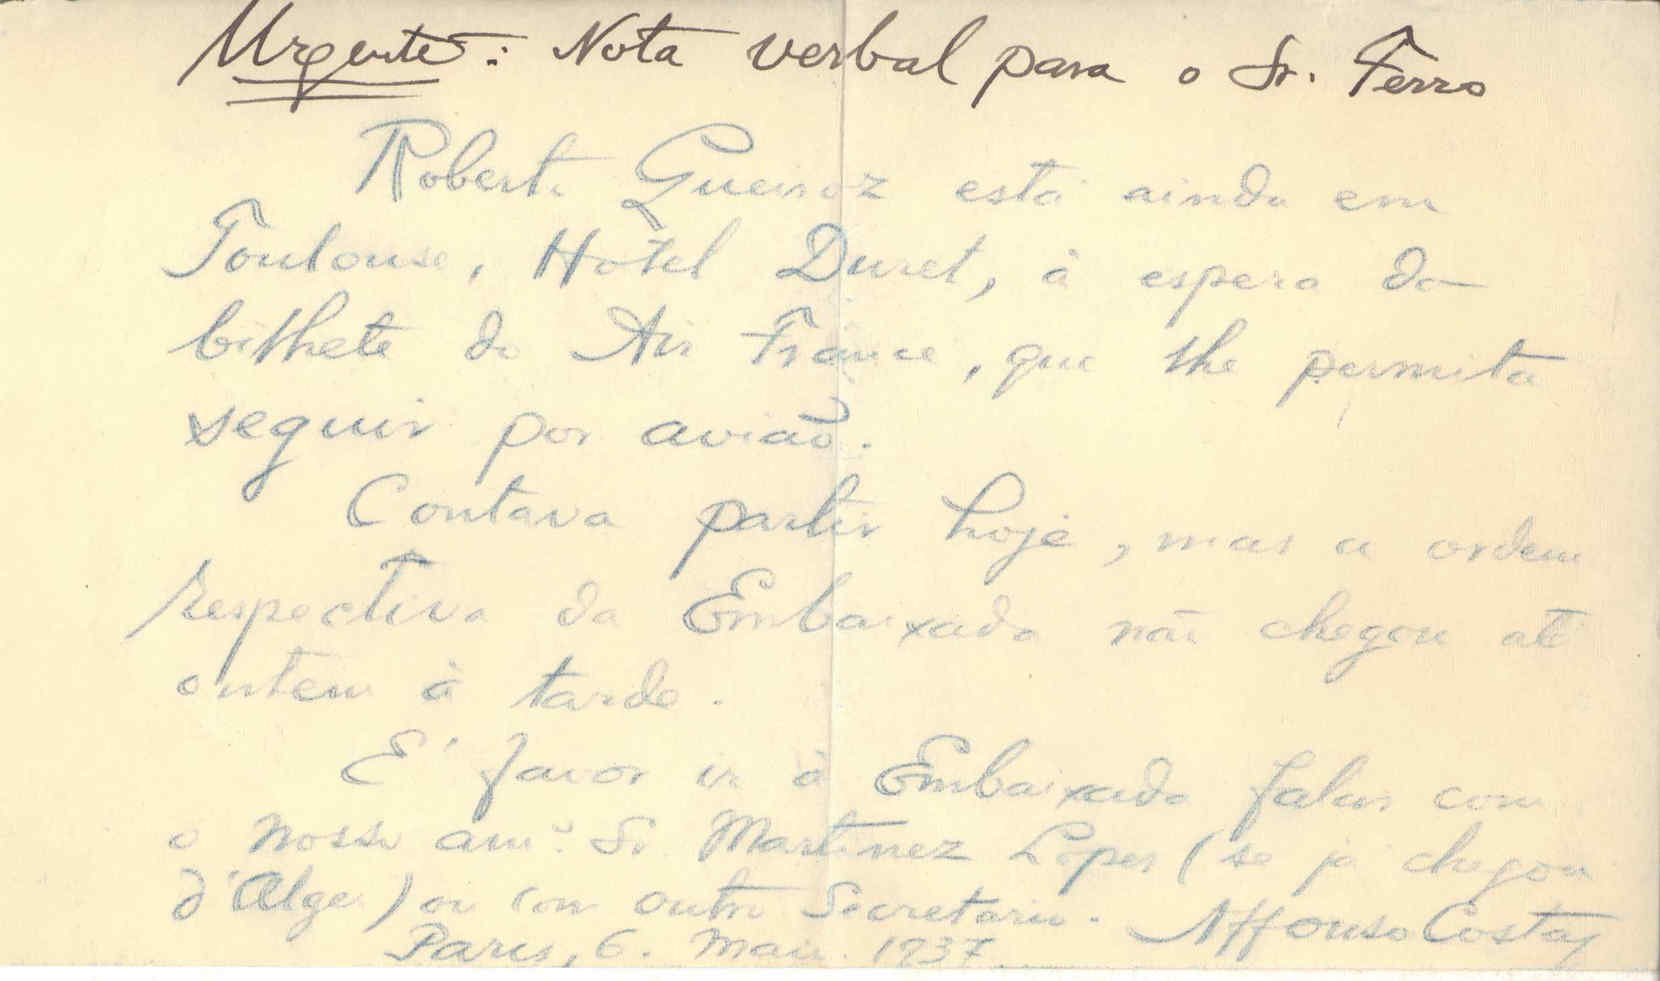 Urgente: Nota verbal para o Sr. Ferro
Roberto Queiroz está ainda em
Toulouse, Hotel Duret, à espera do
bilhete do Air France, que lhe permita
seguir por avião.
Contava partir hoje, mas a ordem
respectiva da Embaixada não chegou até
ontem à tarde.
E' favor ir à Embaixada falar com
o nosso amº Sr Martinez Lopes (se já chegou
d'Alger) ou com outro Secretario. Affonso Costa
Paris, 6. Maio. 1937